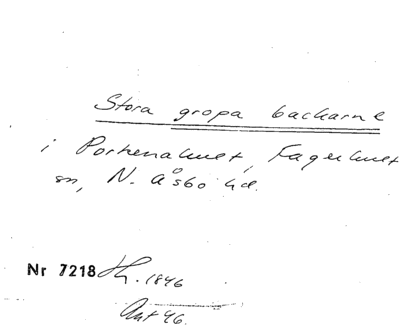 Stora gropa backarne
i Porkenahult, Fagerhult
sn, N. Åsbo hd.
Nr 7218 Lh. 1846
Ant 46.